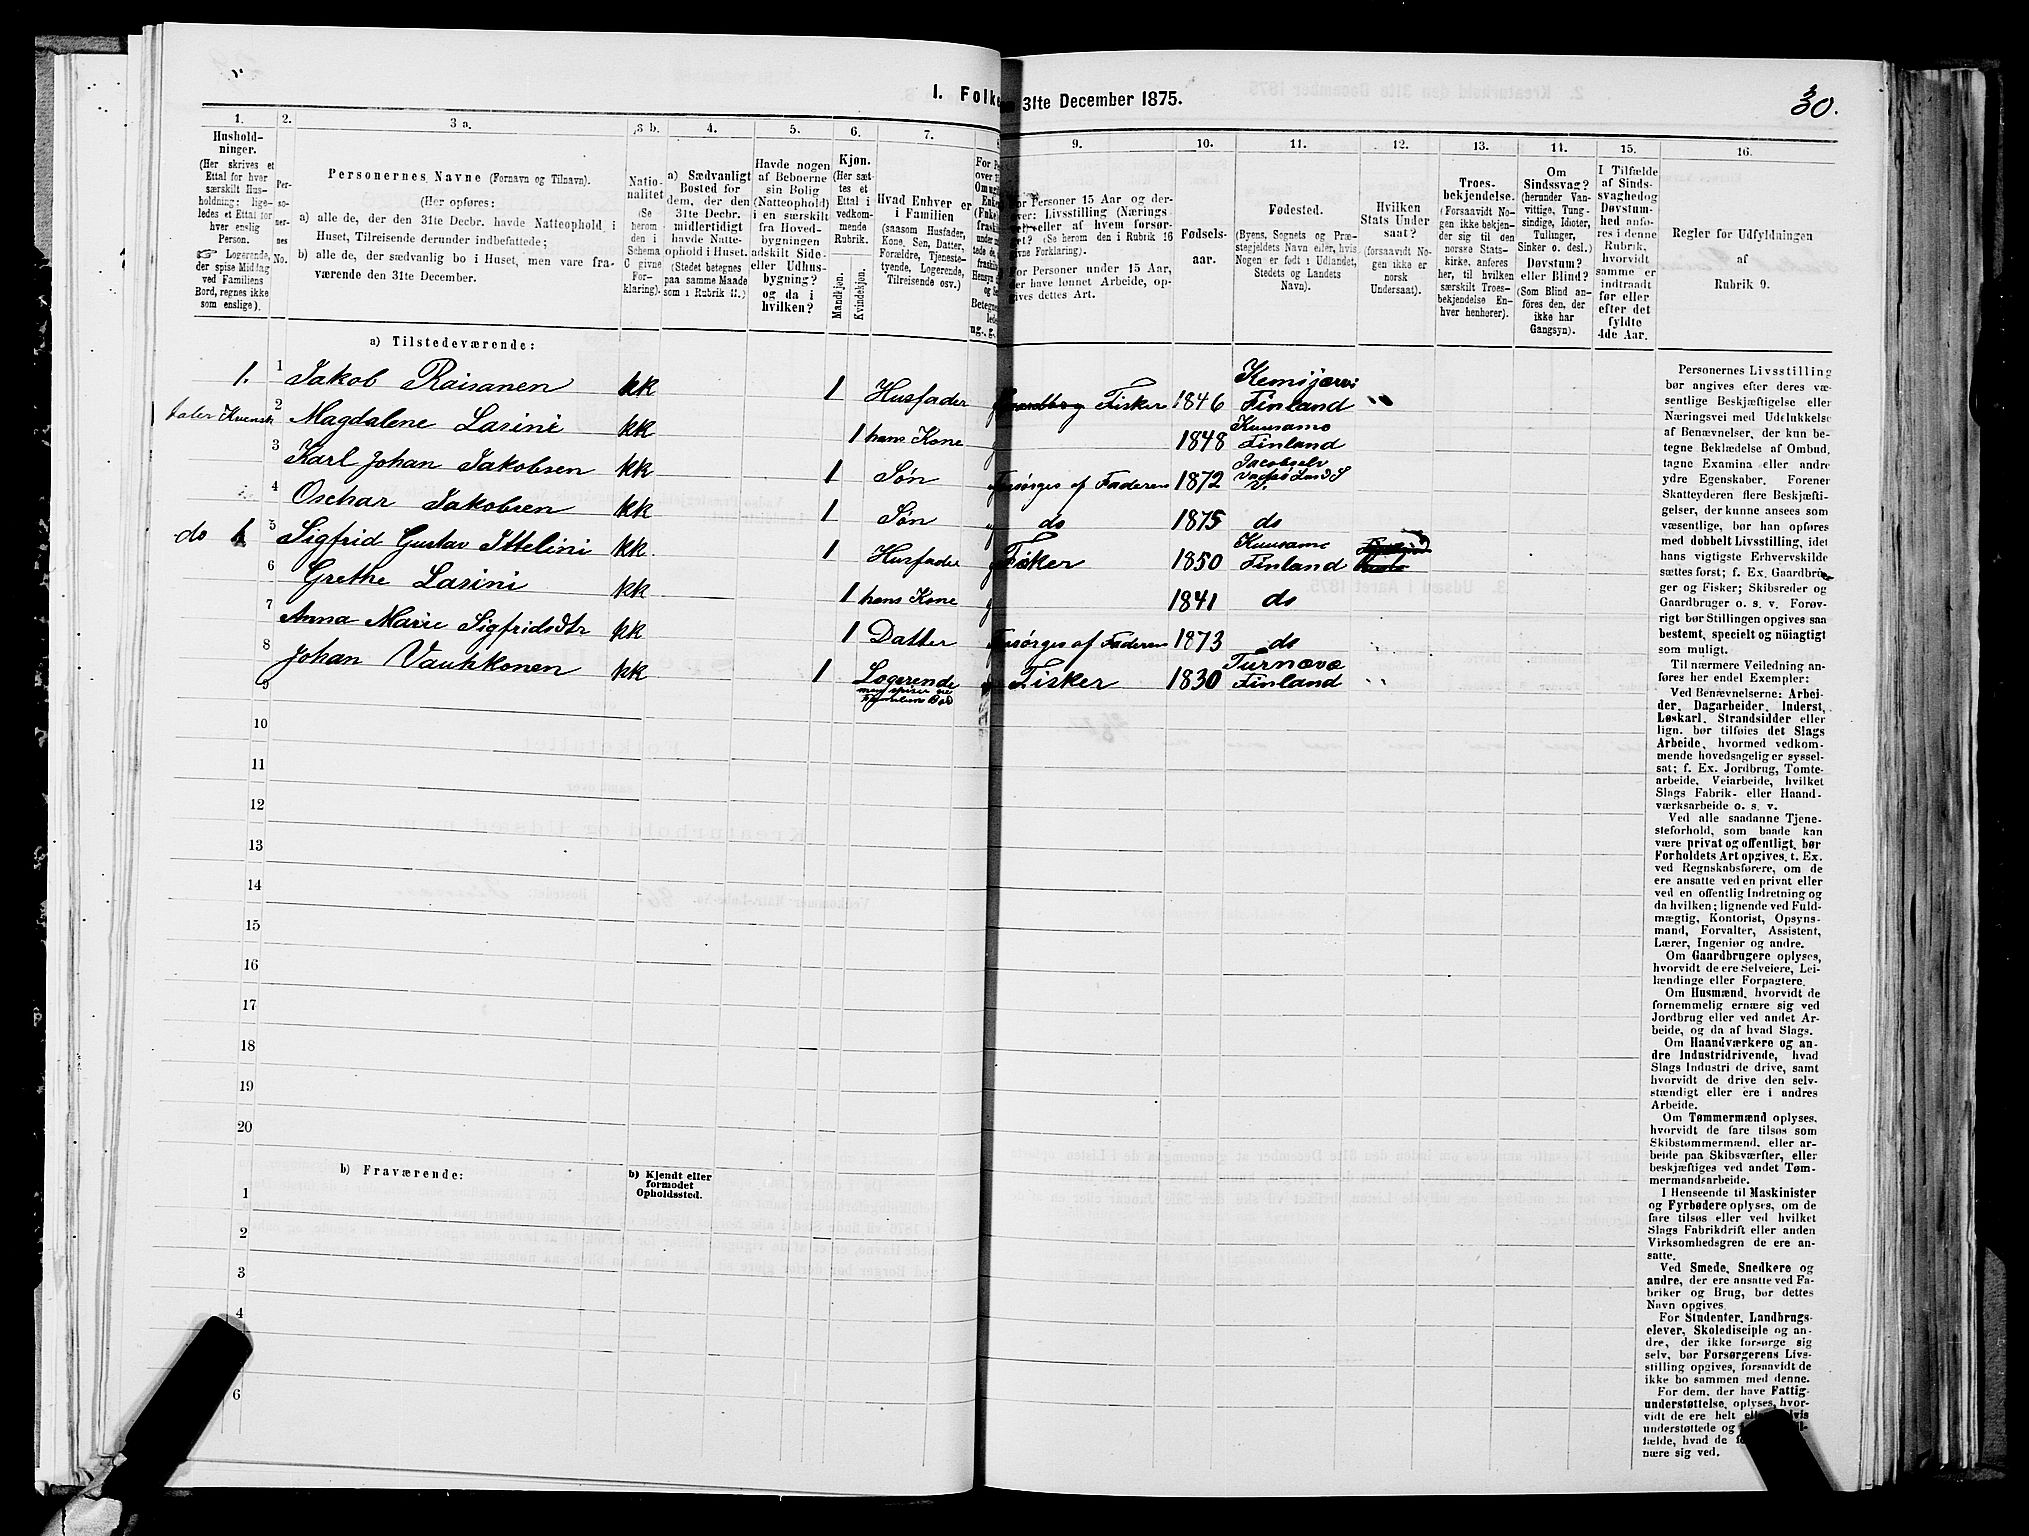 1. Folke 31te December 1875.
30.
1.
Hushold-
ninger.
(Her skrives et
Ettal for hver
særskilt Hus-
holdning; lige-
ledes et Ettal for
hver enslig
Person.
☞ Logerende,
der spise Middag
ved Familiens
Bord, regnes ikke
som enslige).
2.
Per-
so-
ner-
nes
No.
3 a.
Personernes Navne (Fornavn og Tilnavn).
(Her opføres:
a) alle de, der den 31te Decbr. havde Natteophold i
Huset, Tilreisende derunder indbefattede;
b) alle de, der sædvanlig bo i Huset, men vare fra-
værende den 31te December.
3 b.
Natio-
nalitet
(Se
herom
den i
Schema
C givne
For-
klaring).
4.
a) Sædvanligt
Bosted for
dem, der den
31te Decbr.
midlertidigt
havde Natte-
ophold i Huset.
(Stedet betegnes
paa samme Maade
som i Rubrik 11.)
5.
Havde nogen
af Beboerne
sin Bolig
(Natteophold)
i en særskilt
fra Hoved-
bygningen
adskilt Side-
eller Udhus-
bygning?
og da i
hvilken?
6.
Kjøn.
(Her sæt-
tes et
Ettal i
vedkom-
mende
Rubrik.
Mandkjøn.
Kvindekjøn.
7.
Hvad Enhver er
i Familien
(saasom Husfader,
Kone, Søn, Datter,
Forældre, Tjeneste-
tyende, Logerende,
Tilreisende osv.)
9.
For Personer 15 Aar og der-
over: Livsstilling (Nærings-
vei) eller af hvem forsør-
get? (Se herom den i Rubrik 16
givne Forklaring).
For Personer under 15 Aar,
der have lønnet Arbeide, op-
gives dettes Art.
10.
Fødsels-
aar.
11.
Fødested.
(Byens, Sognets og Præ-
stegjeldets Navn eller, hvis
Nogen er født i Udlandet,
Stedets og Landets
Navn).
12.
Hvilken
Stats Under
saat?
(forsaavidt No-
gen ikke er
norsk
Undersaat).
13.
Troes-
bekjendelse.
(Forsaavidt No-
gen ikke bekjen-
der sig til den
norske Stats-
kirke, anføres
her, til hvilken
særskilt Troes-
bekjendelse En-
hver henhører).
11.
Om
Sindssvag?
(herunder Van-
vittige, Tung-
sindige, Idioter,
Tullinger,
Sinker o. desl.)
Døvstum?
eller Blind?
(Som Blind an-
føres den, der
ikke har
Gangsyn).
15.
I Tilfælde
af Sinds-
svaghed og
Døvstum-
hed anfø-
res i denne
Rubrik,
hvorvidt
samme er
indtraadt
før eller
efter det
fyldte
4de Aar.
16.
Regler for Udfyldningen
af
Rubrik 9.
a) Tilstedeværende:
1. 1 Jakob Raisanen kk 1 Husfader g Fisker 1846 Kemijærvi Finland
taler Kvensk 2 Magdalene Lasini kk 1 hans Kone g 1848 Kuusamo Finland
3 Karl Johan Jakobsen kk 1 Søn Forsørges af Faderen 1872 Jacobselv Vadsø Lands
4 Oschar Jakobsen kk 1 Søn do 1875 do
do 1 5 Sigfrid Gustav Ittelini kk 1 Husfader g Fisker 1850 Kuusamo Finland
6 Grethe Lasini kk 1 hans Kone g 1841 do
7 Anna Marie Sigfridsdtr kk 1 Datter Forsørges af Faderen 1873 do
8 Johan Vaukkonen kk 1 Logerende Fisker 1830 Turnævæ Finland
9
10
11
12
13
14
15
16
17
18
19
20
b) Fraværende:
b) Kjendt eller
formodet
Opholdssted.
1
2
3
4
6
Personernes Livsstilling
bør angives efter deres væ-
sentlige Beskjæftigelse eller
Næringsvei med Udelukkelse
af Benævnelser, der kun be-
tegne Beklædelse af Ombud,
tagne Examina eller andre
ydre Egenskaber. Forener
Skatteyderen flere Beskjæfti-
gelser, der kunne ansees som
væsentlige, bør han opføres
med dobbelt Livsstilling, idet
hans vigtigste Erhvervskilde
sættes først; f. Ex. Gaardbru-
ger og Fisker; Skibsreder og
Gaardbruger o. s. v. Forøv-
rigt bør Stillingen opgives saa
bestemt, specielt og nøiagtigt
som muligt.
Til nærmere Veiledning an-
føres her endel Exempler:
Ved Benævnelserne: Arbei-
der, Dagarbeider, Inderst,
Løskarl, Strandsidder eller
lign. bør tilføies det Slags
Arbeide, hvormed vedkom-
mende hovedsagelig er syssel-
sat; f. Ex. Jordbrug, Tomte-
arbeide, Veiarbeide, hvilket
Slags Fabrik- eller Haand-
værksarbeide o. s. v.
Ved alle saadanne Tjene-
steforhold, som baade kan
være privat og offentligt, bør
Forholdets Art opgives, t. Ex.
ved Regnskabsførere, om de
ere ansatte ved en privat eller
ved en offentlig Indretning og
da hvilken; lignende ved Fuld-
mægtig, Kontorist, Opsyns-
mand, Forvalter, Assistent,
Lærer, Ingeniør og andre.
Om Gaardbrugere oplyses,
hvorvidt de ere Selveiere, Lei-
lændinge eller Forpagtere.
Om Husmænd, hvorvidt de
fornemmelig ernære sig ved
Jordbrug eller ved andet Ar-
beide, og da af hvad Slags.
Om Haandværkere og an-
dre Industridrivende, hvad
Slags Industri de drive, samt
hvorvidt de drive den selv-
stændigt eller ere i andres
Arbeide.
Om Tømmermænd oplyses,
hvorvidt de fare tilsøs som
Skibstømmermænd, eller ar-
beide paa Skibsværfter, eller
beskjæftiges ved andet Tøm-
mermandsarbeide.
I Henseende til Maskinister
og Fyrbødere oplyses, om de
fare tilsøs eller ved hvilket
Slags Fabrikdrift eller anden
Virksomhedsgren de ere an-
satte.
Ved Smede, Snedkere og
andre, der ere ansatte ved Fa-
briker og Brug, bør dettes
Navn opgives.
For Studenter, Landbrugs-
elever, Skoledisciple og an-
dre, der ikke forsørge sig
selv, bør Forsørgerens Livs-
stilling opgives, forsaavidt de
ikke bo sammen med denne.
For dem, der have Fattig-
understøttelse, oplyses, hvor-
vidt de ere helt eller delvis
understøttede og
fælde, hvad de
nære sig ved.